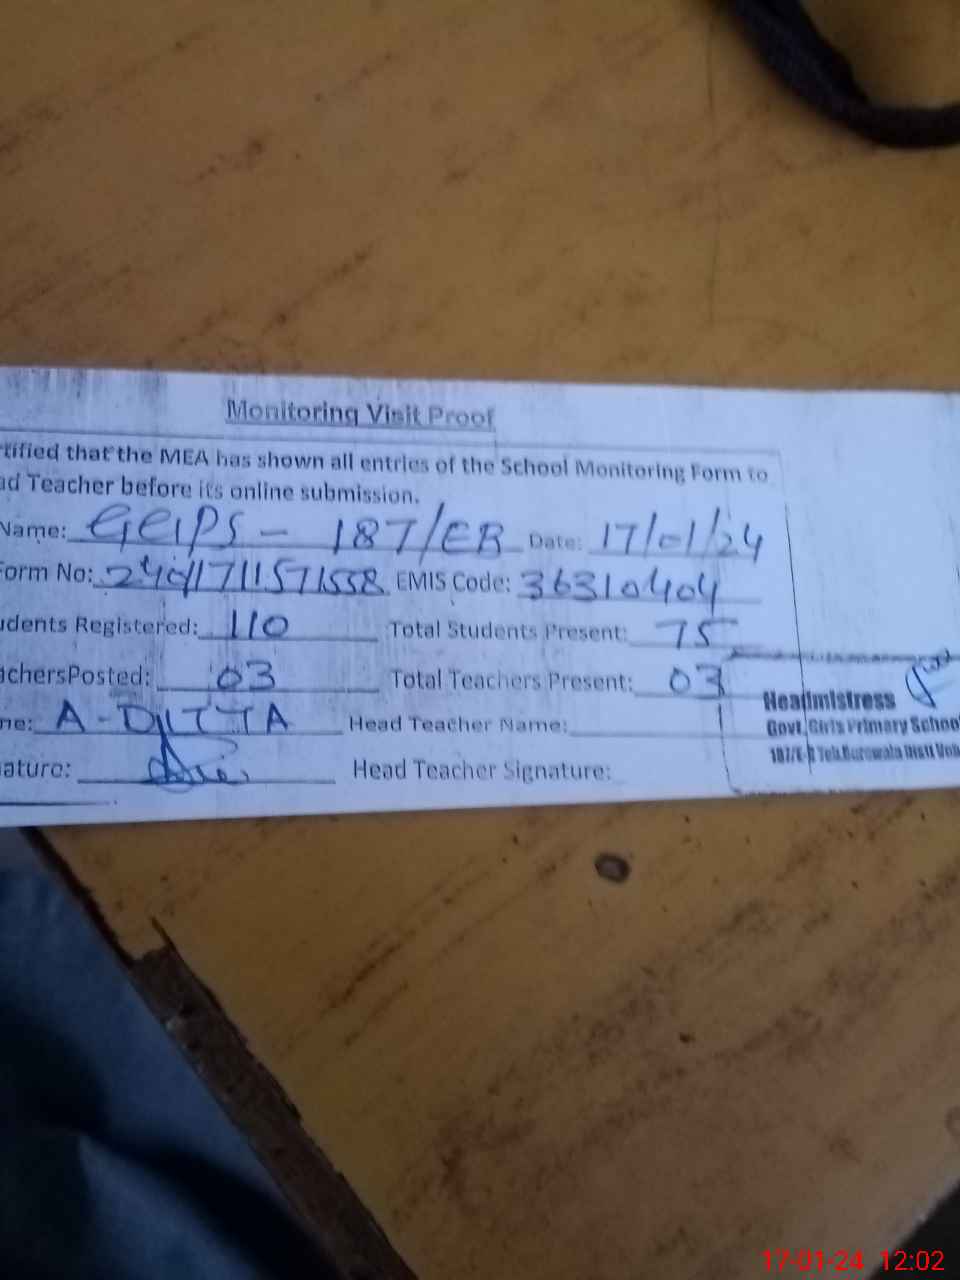 Monitoring Visit Proof
rtified that the MEA has shown all entries of the School Monitoring Form to
ad Teacher before its online submission.
Name: GGPS - 187/EB Date: 17/01/24
Form No: EMIS Code: 36310404
udents Registered: 110 Total Students Present: 75
achersPosted: 03 Total Teachers Present: 03
me: A-DITTA Head Teacher Name:
ature: Head Teacher Signature:
Headmistress
Govt. Girls Primary School
187/E-B Teh. Burewala Distt
17-01-24 12:02